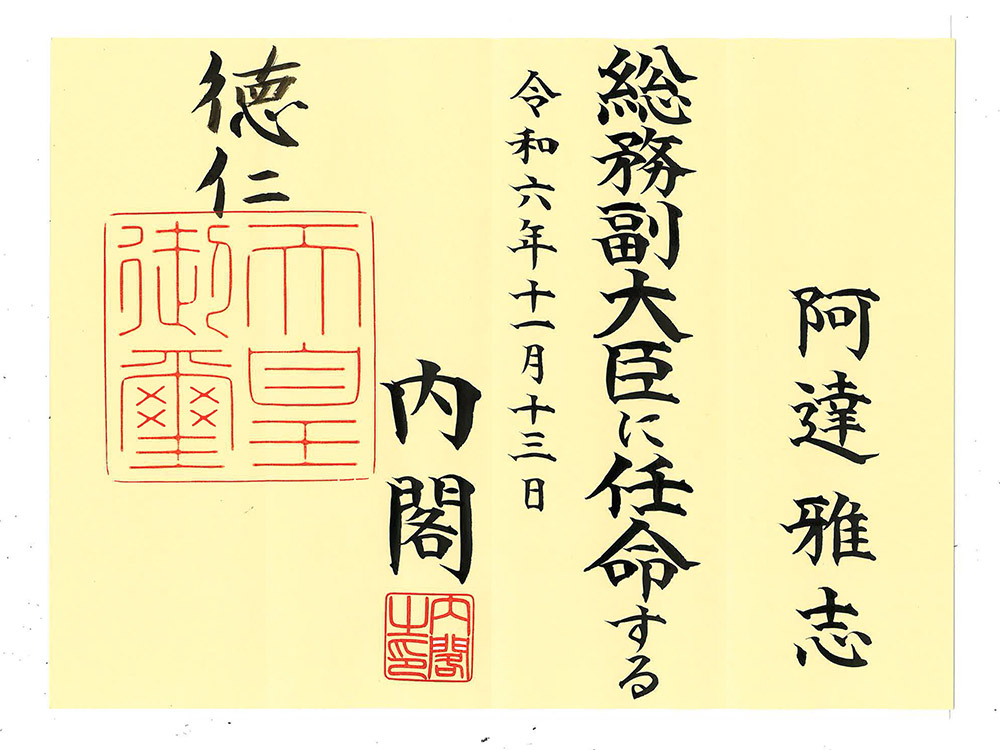 阿達雅志
総務副大臣に任命する
令和六年十一月十三日
内閣
内閣之印
徳仁
天皇御璽